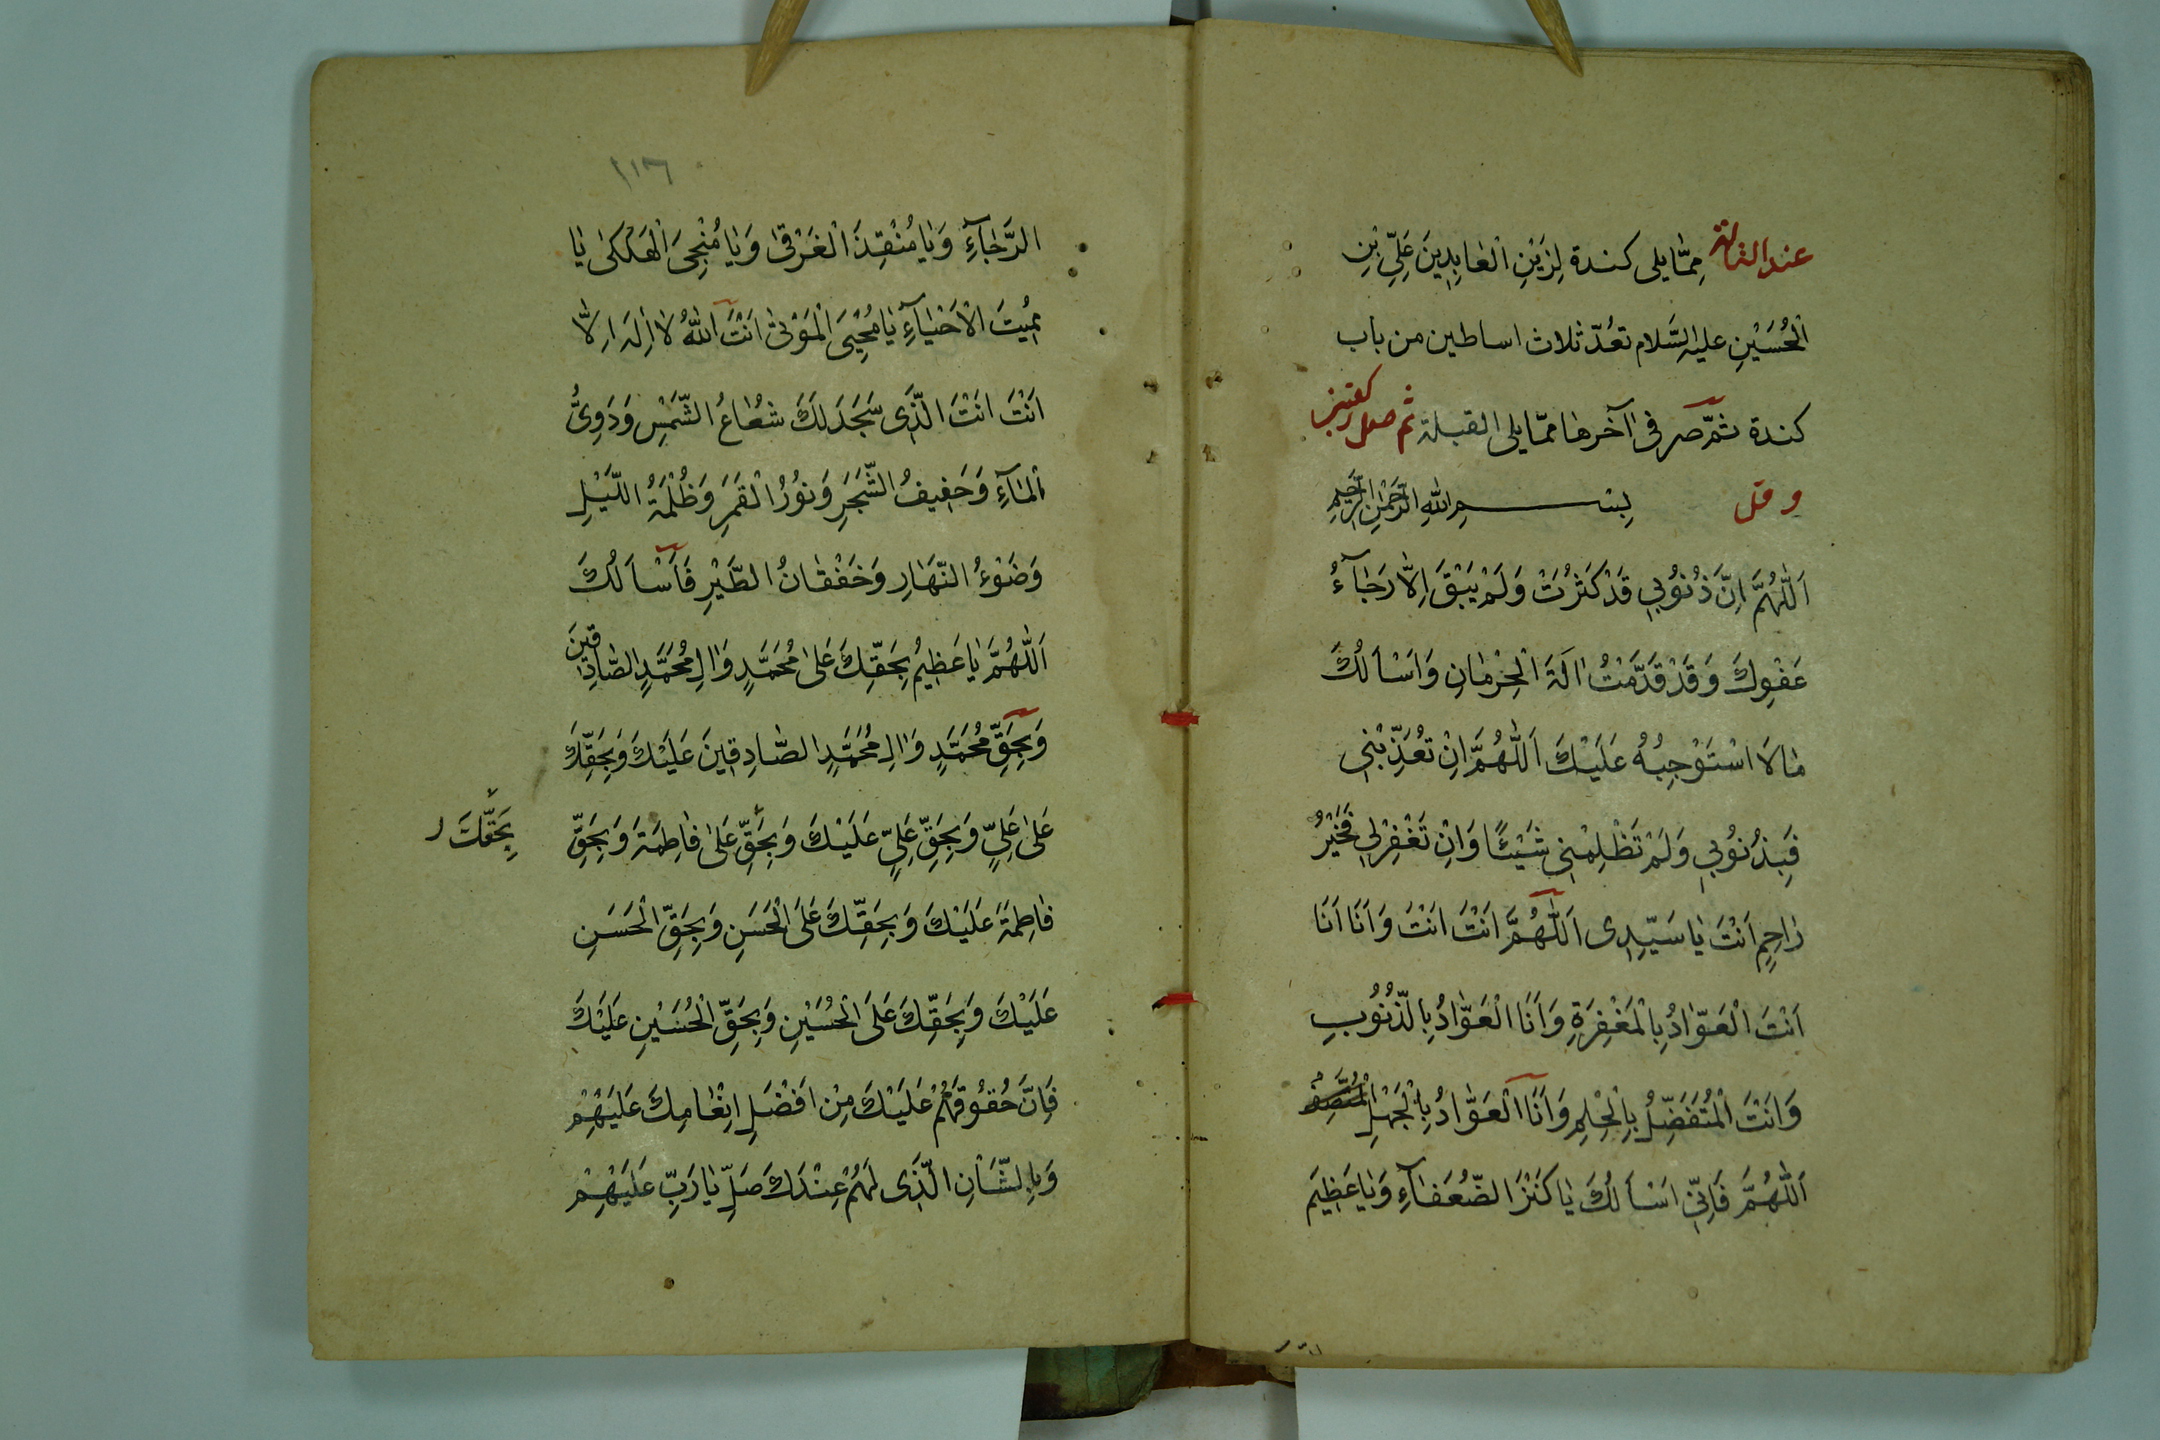 عند الثالثة مِمّا يلى كندة لِزَيْنِ الْعٰابِدِينَ عَلِيِّ بْنِ
الْحُسَيْنِ عليه السَّلام تعُدّ ثلاث اساطين من باب
كندة ثمّ صر فى آخرها ممّا يلى القبلة ثم صل ركعتين
و قل بِسْمِ اللهِ الرَّحْمٰنِ الرَّحِيمِ
اَللّٰهُمَّ اِنَّ ذُنُوبِي قَدْ كَثُرَتْ وَلَمْ يَبْقَ اِلّٰا رَجٰآءُ
عَفْوِكَ وَقَدْ قَدَّمْتُ اٰلَةَ الْحِرْمٰانِ وَاَسْاَلُكَ
مٰا لَا اسْتَوْجِبُهُ عَلَيْكَ اَللّٰهُمَّ اِنْ تُعَذِّبْنِي
فَبِذُنُوبِي وَلَمْ تَظْلِمْنِي شَيْئًا وَاِنْ تَغْفِرْ لِي فَخَيْرُ
رٰاحِمٍ اَنْتَ يٰا سَيِّدِى اَللّٰهُمَّ اَنْتَ اَنْتَ وَاَنَا اَنَا
اَنْتَ الْعَوّٰادُ بِالْمَغْفِرَةِ وَاَنَا الْعَوّٰادُ بِالذُّنُوبِ
وَاَنْتَ الْمُتَفَضِّلُ بِالْحِلْمِ وَاَنَا الْعَوّٰادُ بِالْجَهْلِ
اَللّٰهُمَّ فَاِنّي اَسْاَلُكَ يٰا كَنْزَ الضُّعَفٰآءِ وَيٰا عَظِيمَ
١١٦
الرَّجٰآءِ وَيٰا مُنْقِذَ الْغَرْقىٰ وَيٰا مُنْجِىَ الْهَلْكىٰ يٰا
مُمِيتَ الْاَحْيٰآءِ يٰا مُحْيِىَ الْمَوْتىٰ اَنْتَ اللّٰهُ لٰا اِلٰهَ اِلّٰا
اَنْتَ اَنْتَ الَّذِى سَجَدَ لَكَ شُعٰاعُ الشَّمْسِ وَدَوِىُّ
الْمٰآءِ وَحَفِيفُ الشَّجَرِ وَنُورُ الْقَمَرِ وَظُلْمَةُ اللَّيْلِ
وَضَوْءُ النَّهٰارِ وَخَفْقٰانُ الطَّيْرِ فَاَسْاَلُكَ
اَللّٰهُمَّ يٰا عَظِيمُ بِحَقِّكَ عَلىٰ مُحَمَّدٍ وَاٰلِ مُحَمَّدٍ الصّٰادِقِينَ
وَبِحَقِّ مُحَمَّدٍ وَاٰلِ مُحَمَّدٍ الصّٰادِقِينَ عَلَيْكَ وَبِحَقِّكَ
عَلىٰ عَلِيٍّ وَبِحَقِّ عَلِيٍّ عَلَيْكَ وَبِحَقِّ عَلىٰ فٰاطِمَةَ وَبِحَقِّ
بِحَقِّكَ ر
فٰاطِمَةَ عَلَيْكَ وَبِحَقِّكَ عَلَى الْحَسَنِ وَبِحَقِّ الْحَسَنِ
عَلَيْكَ وَبِحَقِّكَ عَلَى الْحُسَيْنِ وَبِحَقِّ الْحُسَيْنِ عَلَيْكَ
فَاِنَّ حُقُوقَهُمْ عَلَيْكَ مِنْ اَفْضَلِ اِنْعٰامِكَ عَلَيْهِمْ
وَبِالشَّاْنِ الَّذِى لَهُمْ عِنْدَكَ صَلِّ يٰا رَبِّ عَلَيْهِمْ